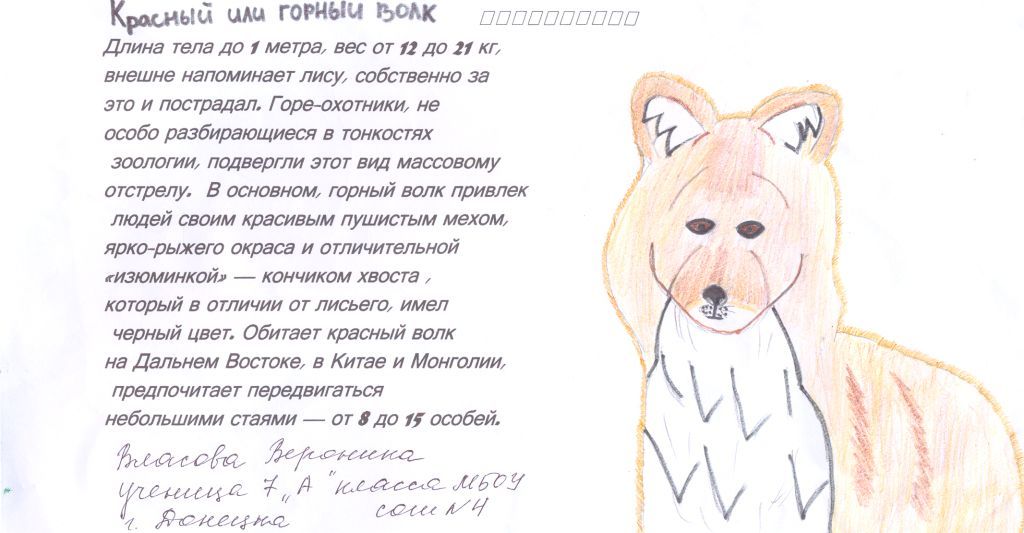 Красный или горный волк
Длина тела до 1 метра, вес от 12 до 21 кг,
внешне напоминает лису, собственно за
это и пострадал. Горе-охотники, не
особо разбирающиеся в тонкостях
зоологии, подвергли этот вид массовому
отстрелу. В основном, горный волк привлек
людей своим красивым пушистым мехом,
ярко-рыжего окраса и отличительной
«изюминкой» — кончиком хвоста ,
который в отличии от лисьего, имел
черный цвет. Обитает красный волк
на Дальнем Востоке, в Китае и Монголии,
предпочитает передвигаться
небольшими стаями — от 8 до 15 особей.
Власова Вероника
ученица 7 „А" класса МБОУ
г. Донецка сош N4